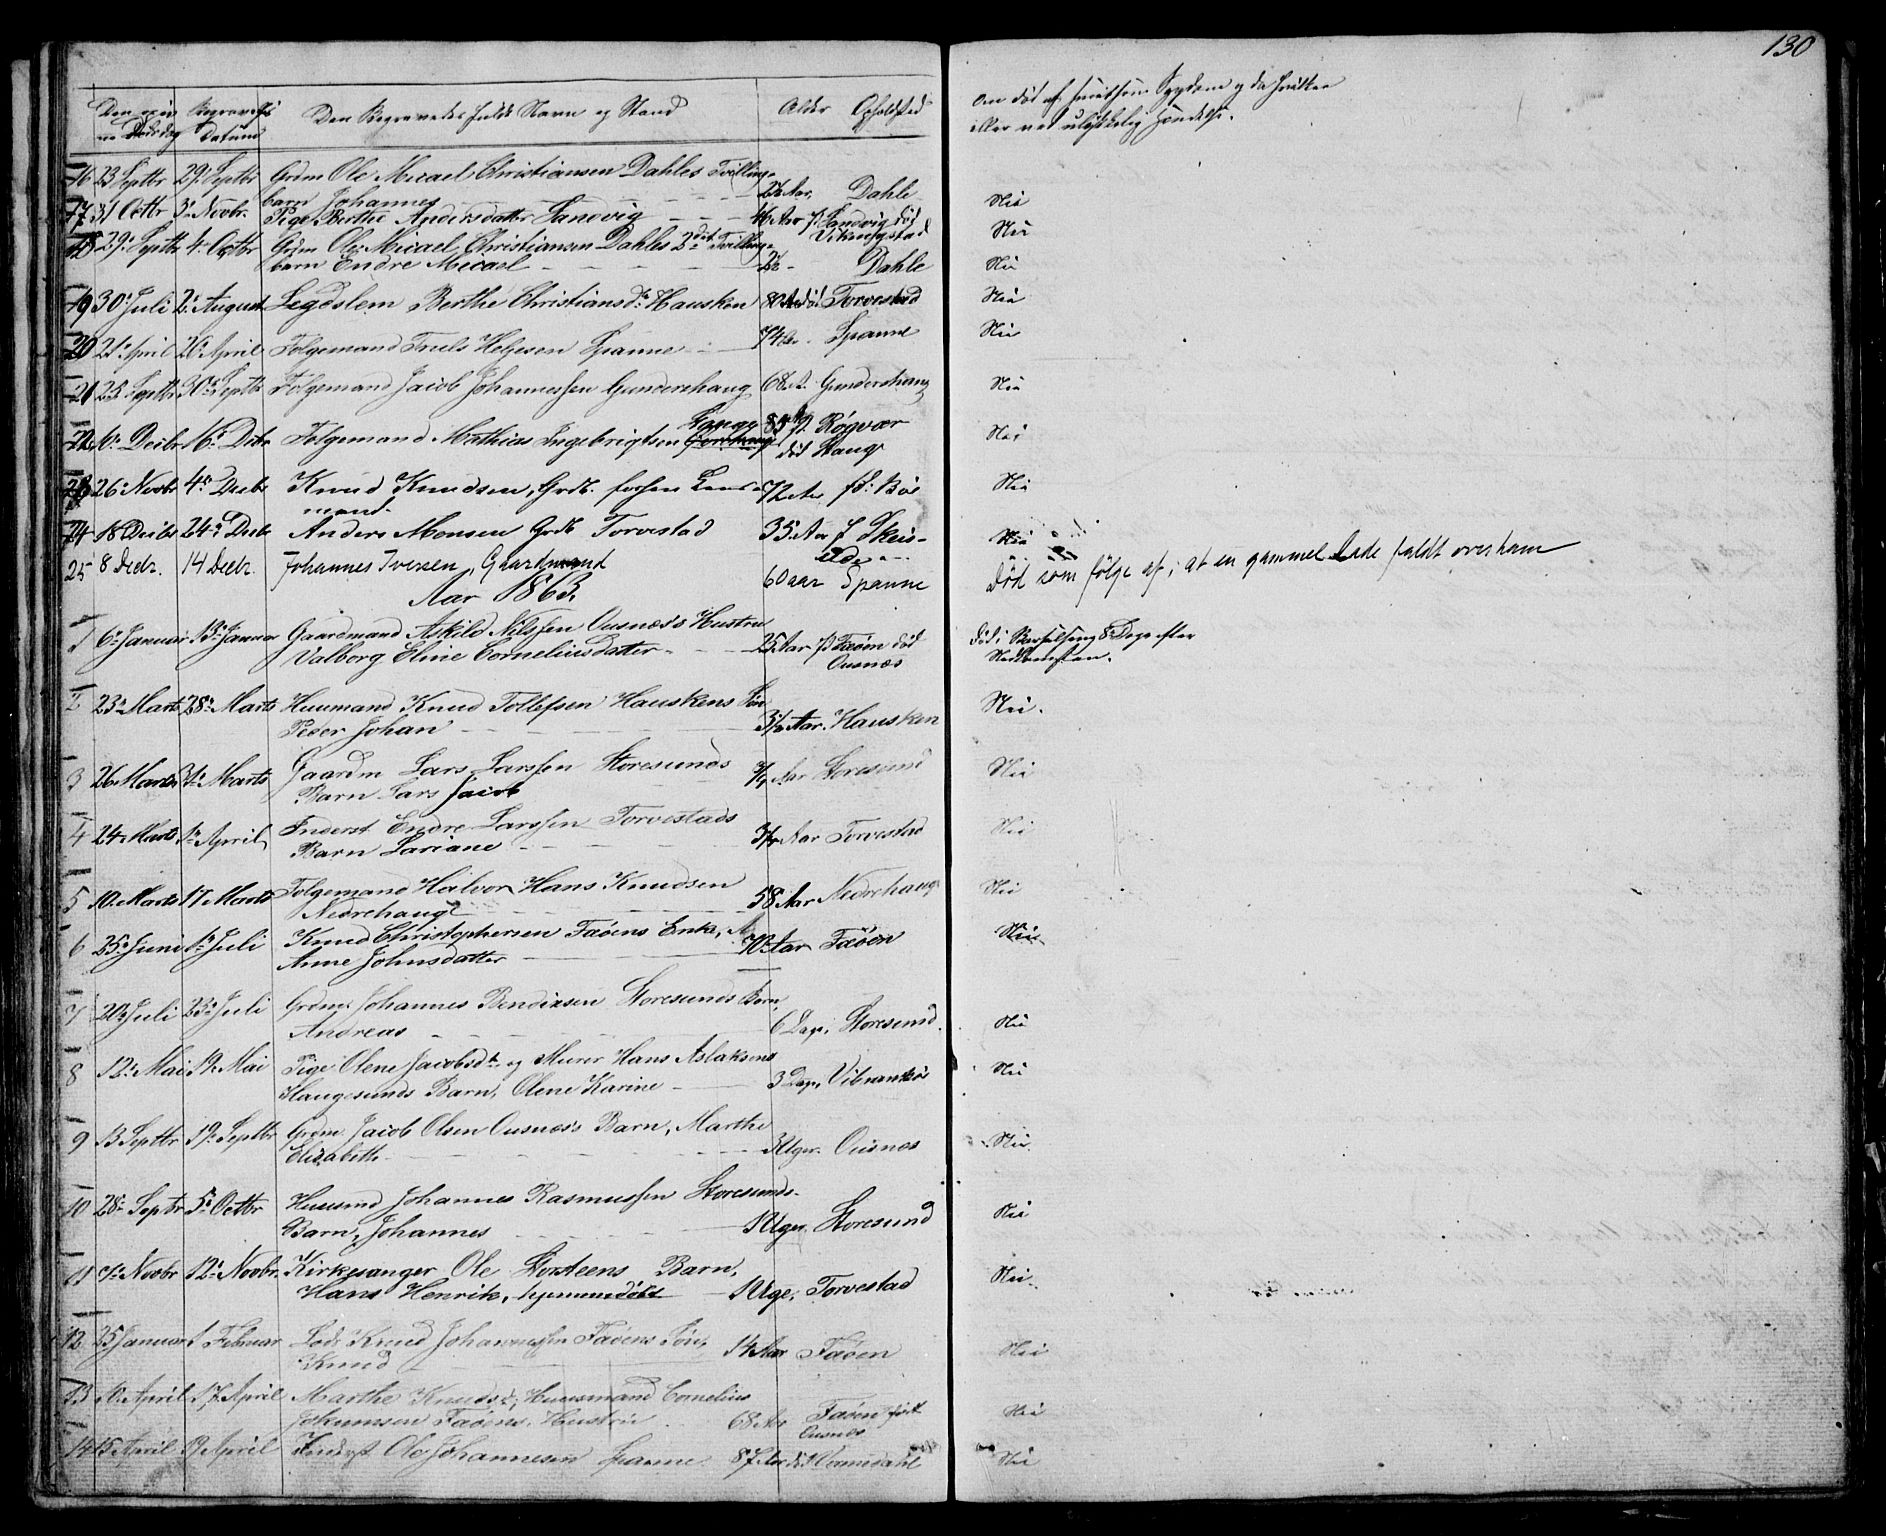 130
Begravelses Datum
Den Begravedes fulde Navn og Stand
Alder Opholdsted
Om død af smitsom Sygdom
eller ved ulykkelig Hændelse.
16 23 Septbr 29 Septbr Grdm Ole Micael Christiansen Dahles Tvillinge-
barn Johannes 2½ Aar, Dahle Nei
17 31 Octbr 3 Novbr. Pige Berthe Andersdatter Sandvig 46 Aar f. Sandvig død
Vikingstad Nei
18 29 Septbr 4 Octbr Grdm Ole Micael Christiansen Dahles 2det Tvillinge-
barn Endre Micael 2½ Dahle Nei
19 30 Juli 2 August Legdslem Berthe Christiansdr Hausken 80 Aar død Torvestad Nei
20 21 April 26 April Folgemand Truls Helgesen Spanne 74 Spanne Nei
21 23 Septbr 30 Septbr Folgemand Jacob Johannessen Gundershaug 68 A. Gundershaug Nei
22 Decbr 16 Decbr Folgemand Mathias Ingebrigtsen Hauge 85 f. Røgvær
død Haug Nei
23 26 Novbr 4 Decbr Knud Knudsen, Grdb. forhen Lens-
mand 72 Aar fd: Bøe Nei
24 18 Decbr 24 Decbr Anders Monsen Grdb Torvestad 35 Aar f Skeis- Nei
25 8 Decbr. 14 Decbr. Johannes Iversen, Gaardmand 60 aar Spanne Død som følge af, at en gammel Lade faldt over ham
Aar 1863.
1 6 Januar 13 Januar Gaardmand Askild Nilssen Ousnæs's Hustru
Valborg Eline Corneliusdatter 25 Aar f. Faøen død
Ousnæs Død i Barselseng 8 Dage efter
Nedkomsten.
2 23 Marts 28 Marts Huusmand Knud Tollefsen Hauskens Søn
Peder Johan 3½ Aar. Hausken Nei.
3 26 Marts 31 Marts Gaardm Lars Larssen Storesunds
Barn Lars Jacob Aar Storesund Nei
4 24 Marts 1 April Inderst Endre Larssen Torvestads
Barn Lariane 3/4 Aar Torvestad Nei
5 10 Marts 17 Marts Folgemand Halvor Hans Knudsen
Nedrehaug 58 Aar Nedrehaug Nei
6 25 Juni 1 Juli Knud Christophersen Faøens Enke,
Anne Johnsdatter 70 Aar Faøen Nei
7 20 Juli 23 Juli Grdm: Johannes Bendixsen Storesunds Barn,
Andreas 6 Dage, Storesund Nei
8 12 Mai 19 Mai Pige Olene Jacobsdtr og Murer Hans Aslaksens
Haugesunds Barn, Olene Karine 3 Dage, Vibrandsøe Nei
9 13 Septbr 19 Septbr Grdm Jacob Olsen Ousnæs's Barn, Marthe
Elisabeth 3 Uger. Ousnæs Nei.
10 28 Septbr 5 Octbr Huusmd Johannes Rasmussen Storesunds-
Barn, Johannes Uger, Storesund Nei
11 Novbr 12 Novbr. Kirkesanger Ole Storsteens Barn,
Hans Henrik, hjemmedøbt 1 Uge, Torvestad Nei.
12 25 Januar 1 Februar Lods Knud Johannessen Faøens Søn,
Knud 14 Aar Faøen Nei
13 10 April 17 April Marthe Knudsdr, Huusmand Cornelius
Johannsen Faøens Hustru 68 Aar Faøen født
Ousnæs Nei
14 15 April 19 April Inderst Ole Johannesen Spanne 87 Aar Nei